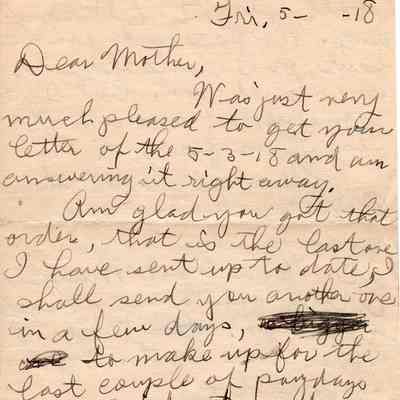 Fri, 5- -18
Dear Mother,
Was just very
much pleased to get your
letter of the 5-3-18 and am
answering it right away.
Am glad you got that
order, that is the last one
I have sent up to date, I
shall send you another one
in a few days, a bigger
one to make up for the
last couple of paydays